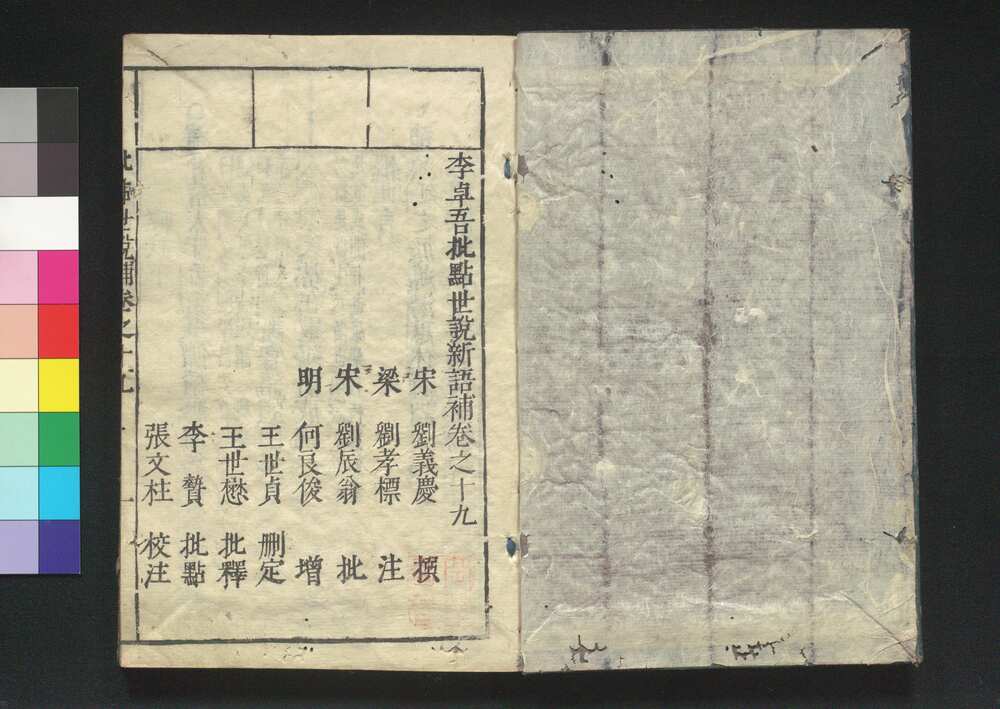 李卓吾批點世說新語補卷之十九
宋 劉義慶 撰
梁 劉孝標 注
宋 劉辰翁 批
明 何良俊 增
王世貞 刪定
王世懋 批釋
李贄 批點
張文柱 校注
批點世說補卷之十九 一